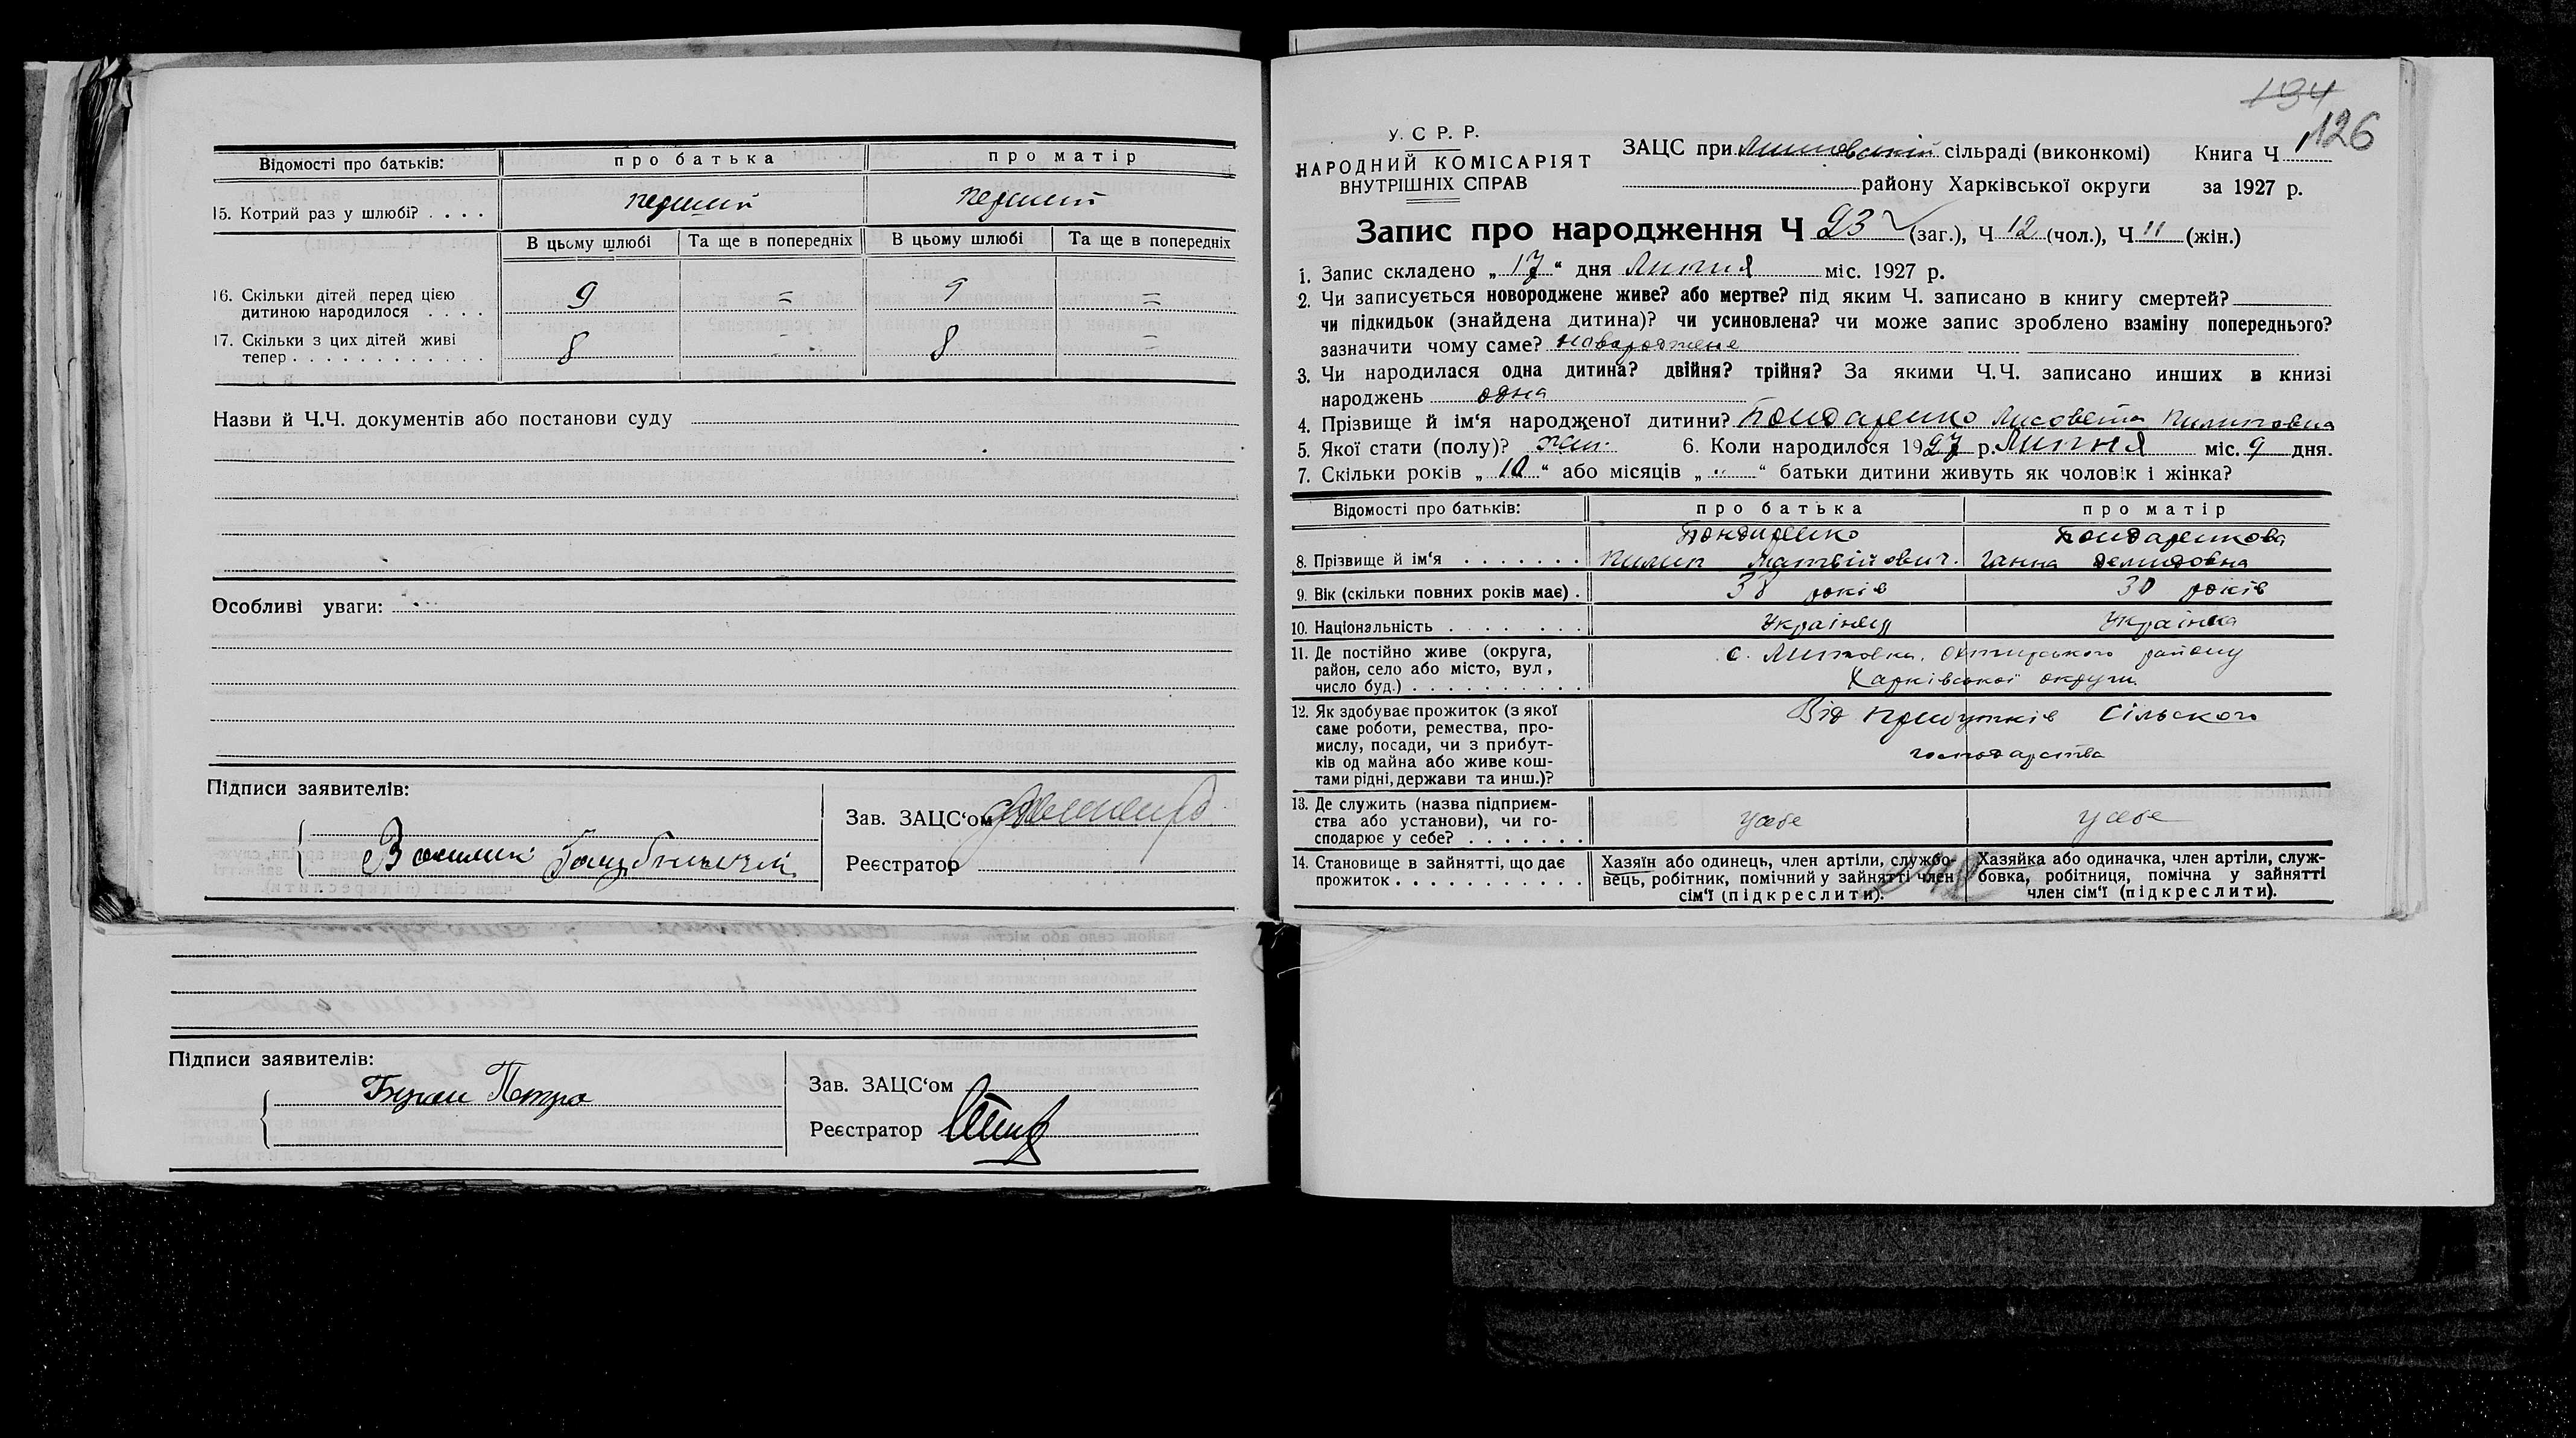 Відомості про батьків: про батька про матір
15. Котрий раз у шлюбі? . . . . перший перший
В цьому шлюбі Та ще в попередніх В цьому шлюбі Та ще в попередніх
16. Скільки дітей перед цією
дитиною народилося . . . . 9 = 9 =
17. Скільки з цих дітей живі
тепер . . . . . . . . . . . . 8 = 8 =
Назви й Ч.Ч. документів або постанови суду
Особливі уваги:
Підписи заявителів:
Зав. ЗАЦС'ом
Реєстратор
Підписи заявителів:
Петро
Зав. ЗАЦС'ом
Реєстратор
134
126
У. С Р. Р.
НАРОДНИЙ КОМІСАРІЯТ
ВНУТРІШНІХ СПРАВ
ЗАЦС при сільраді (виконкомі) Книга Ч 1
району Харківської округи за 1927 р.
Запис про народження Ч 23 (заг.), Ч 12 (чол.), Ч 11 (жін.)
1. Запис складено „ 17 “ дня Липня міс. 1927 р.
2. Чи записується новороджене живе? або мертве? під яким Ч. записано в книгу смертей?
чи підкидьок (знайдена дитина)? чи усиновлена? чи може запис зроблено взаміну попереднього?
зазначити чому саме? новороджене
3. Чи народилася одна дитина? двійня? трійня? За якими Ч.Ч. записано инших в книзі
народжень одна
4. Прізвище й ім'я народженої дитини? Бондаренко Лисовета Пилиповна
5. Якої стати (полу)? жін. 6. Коли народилося 1927 р. Липня міс. 9 дня.
7. Скільки років „ 10 “ або місяців „ " “ батьки дитини живуть як чоловік і жінка?
Відомості про батьків: про батька про матір
Бондаренко Бондаренкова
8. Прізвище й ім'я . . . . . . . Пилип Матвійович. Ганна Демидовна
9. Вік (скільки повних років має) . 38 років 30 років
10. Національність . . . . . . . Українец Українка
11. Де постійно живе (округа,
район, село або місто, вул.,
число буд.) . . . . . . . . . . .
с. Литовка, Охтирського району
Харківської округи.
12. Як здобуває прожиток (з якої
саме роботи, ремества, про-
мислу, посади, чи з прибут-
ків од майна або живе кош-
тами рідні, держави та инш.)?
Від прибутків сільского
господарства
13. Де служить (назва підприєм-
ства або установи), чи го-
сподарює у себе? . . . . . . .
у себе у себе
14. Становище в зайнятті, що дає
прожиток . . . . . . . . . . . .
Хазяїн або одинець, член артіли, службо-
вець, робітник, помічний у зайнятті член
сім'ї (підкреслити).
Хазяйка або одиначка, член артіли, служ-
бовка, робітниця, помічна у зайнятті
член сім'ї (підкреслити).